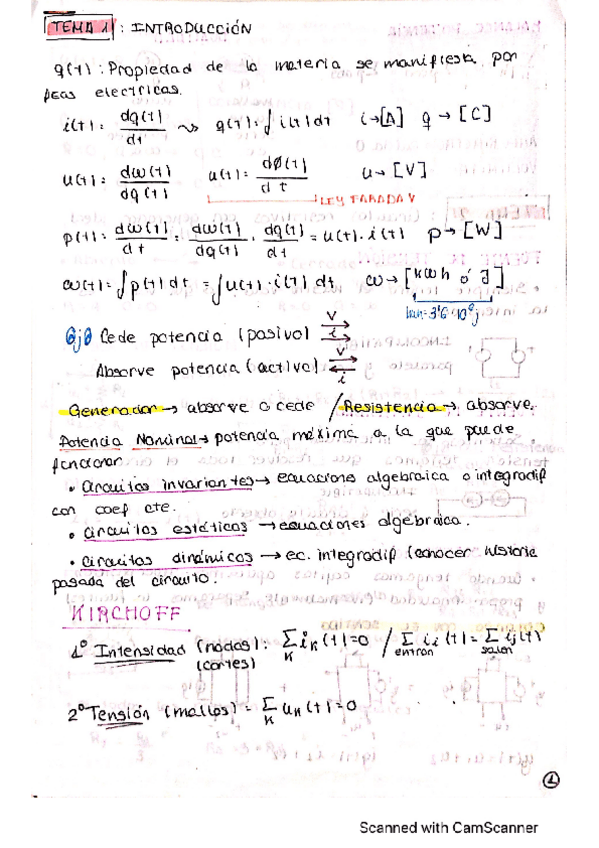 TEMA 1: INTRODUCCIÓN
q(t): Propiedad de la materia se manifiesta por
fzas electricas.
i(t) = dq(t)/dt ⇝ q(t) = ∫i(t)dt i→[A] q → [C]
u(t) = dω(t)/dq(t) u(t) = dø(t)/dt u → [V]
LEY FARADAY
p(t) = dω(t)/dt = dω(t)/dq(t) · dq(t)/dt = u(t)·i(t) p→ [W]
ω(t) = ∫p(t)dt = ∫u(t)·i(t)dt ω → [kwh ó J]
1kwh=3'6·10⁶j
Ojo Cede potencia (pasivo) V i
Absorve potencia (activo) V i
Generador → absorve o cede / Resistencia → absorve.
Potencia Nominal → potencia máxima a la que puede
funcionar
• Circuitos invariantes → ecuaciones algebraica o integrodif
con coef cte.
• Circuitos estáticos → ecuaciones algebraica.
• Circuitos dinámicos → ec. integrodif (conocer historia
pasada del circuito.
KIRCHOFF
1º Intensidad (nodos): Σ_K i_K(t)=0 / Σ_entran ii(t) = Σ_salen ij(t)
(cortes)
2º Tensión (mallas) = Σ_K u_K(t)=0
1
Scanned with CamScanner